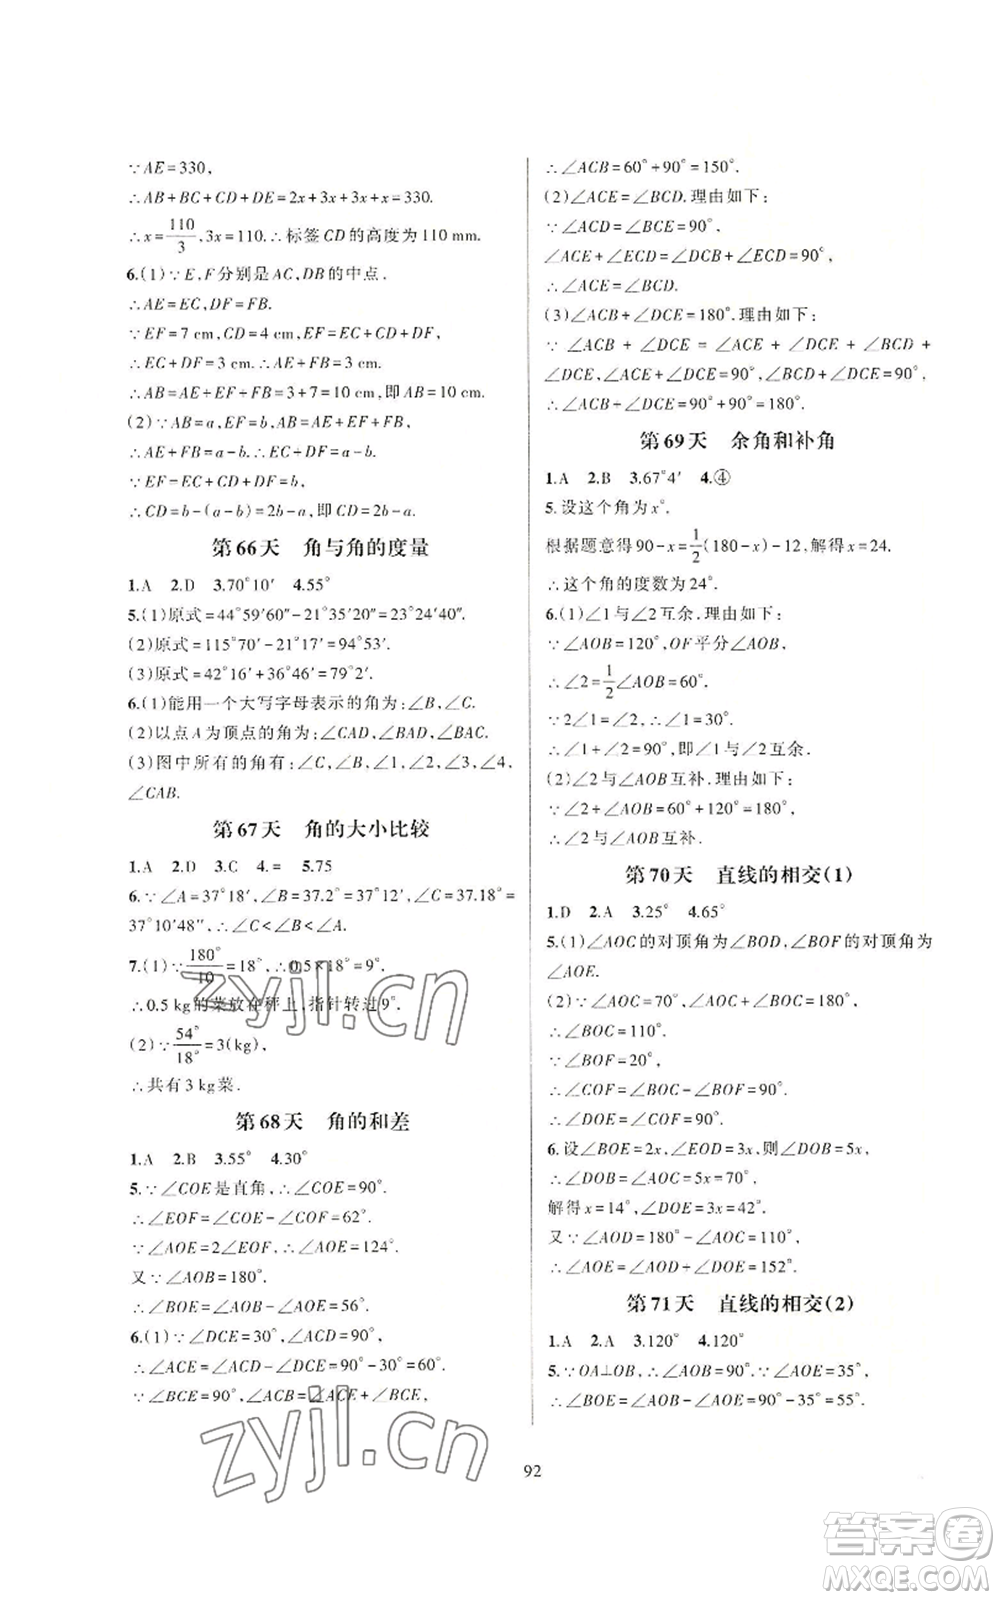 ∵AE=330,
∴AB+BC+CD+DE=2x+3x+3x+x=330.
∴x=110/3,3x=110.∴标签CD的高度为110 mm.
6.(1)∵E,F分别是AC,DB的中点.
∴AE=EC,DF=FB.
∵EF=7 cm,CD=4 cm,EF=EC+CD+DF,
∴EC+DF=3 cm.∴AE+FB=3 cm.
∴AB=AE+EF+FB=3+7=10 cm,即AB=10 cm.
(2)∵AB=a,EF=b,AB=AE+EF+FB,
∴AE+FB=a-b.∴EC+DF=a-b.
∵EF=EC+CD+DF=b,
∴CD=b-(a-b)=2b-a,即CD=2b-a.
第66天 角与角的度量
1.A 2.D 3.70°10′ 4.55°
5.(1)原式=44°59′60″-21°35′20″=23°24′40″.
(2)原式=115°70′-21°17′=94°53′.
(3)原式=42°16′+36°46′=79°2′.
6.(1)能用一个大写字母表示的角为:∠B,∠C.
(2)以点A为顶点的角为:∠CAD,∠BAD,∠BAC.
(3)图中所有的角有:∠C,∠B,∠1,∠2,∠3,∠4,
∠CAB.
第67天 角的大小比较
1.A 2.D 3.C 4.= 5.75
6.∵∠A=37°18′,∠B=37.2°=37°12′,∠C=37.18°=
37°10′48″,∴∠C<∠B<∠A.
7.(1)∵180°/10=18°,∴0.5×18°=9°.
∴0.5 kg的菜放在秤上,指针转过9°.
(2)∵54°/18°=3(kg),
∴共有3 kg菜.
第68天 角的和差
1.A 2.B 3.55° 4.30°
5.∵∠COE是直角,∴∠COE=90°.
∴∠EOF=∠COE-∠COF=62°.
∵∠AOE=2∠EOF,∴∠AOE=124°.
又∵∠AOB=180°.
∴∠BOE=∠AOB-∠AOE=56°.
6.(1)∵∠DCE=30°,∠ACD=90°,
∴∠ACE=∠ACD-∠DCE=90°-30°=60°.
∵∠BCE=90°,∠ACB=∠ACE+∠BCE,
∴∠ACB=60°+90°=150°.
(2)∠ACE=∠BCD.理由如下:
∵∠ACD=∠BCE=90°,
∠ACE+∠ECD=∠DCB+∠ECD=90°,
∴∠ACE=∠BCD.
(3)∠ACB+∠DCE=180°.理由如下:
∵∠ACB+∠DCE=∠ACE+∠DCE+∠BCD+
∠DCE,∠ACE+∠DCE=90°,∠BCD+∠DCE=90°,
∴∠ACB+∠DCE=90°+90°=180°.
第69天 余角和补角
1.A 2.B 3.67°4′ 4.④
5.设这个角为x°.
根据题意得90-x=1/2(180-x)-12,解得x=24.
∴这个角的度数为24°.
6.(1)∠1与∠2互余.理由如下:
∵∠AOB=120°,OF平分∠AOB,
∴∠2=1/2∠AOB=60°.
∵2∠1=∠2,∴∠1=30°.
∴∠1+∠2=90°,即∠1与∠2互余.
(2)∠2与∠AOB互补.理由如下:
∵∠2+∠AOB=60°+120°=180°,
∴∠2与∠AOB互补.
第70天 直线的相交(1)
1.D 2.A 3.25° 4.65°
5.(1)∠AOC的对顶角为∠BOD,∠BOF的对顶角为
∠AOE.
(2)∵∠AOC=70°,∠AOC+∠BOC=180°,
∴∠BOC=110°.
∵∠BOF=20°,
∴∠COF=∠BOC-∠BOF=90°.
∴∠DOE=∠COF=90°.
6.设∠BOE=2x,∠EOD=3x,则∠DOB=5x,
∴∠DOB=∠AOC=5x=70°,
解得x=14°,∠DOE=3x=42°.
又∵∠AOD=180°-∠AOC=110°,
∴∠AOE=∠AOD+∠DOE=152°.
第71天 直线的相交(2)
1.A 2.A 3.120° 4.120°
5.∵OA⊥OB,∴∠AOB=90°.∵∠AOE=35°,
∴∠BOE=∠AOB-∠AOE=90°-35°=55°.
92
zyjl.cn
zyjl.cn
答案圈
MXQE.COM